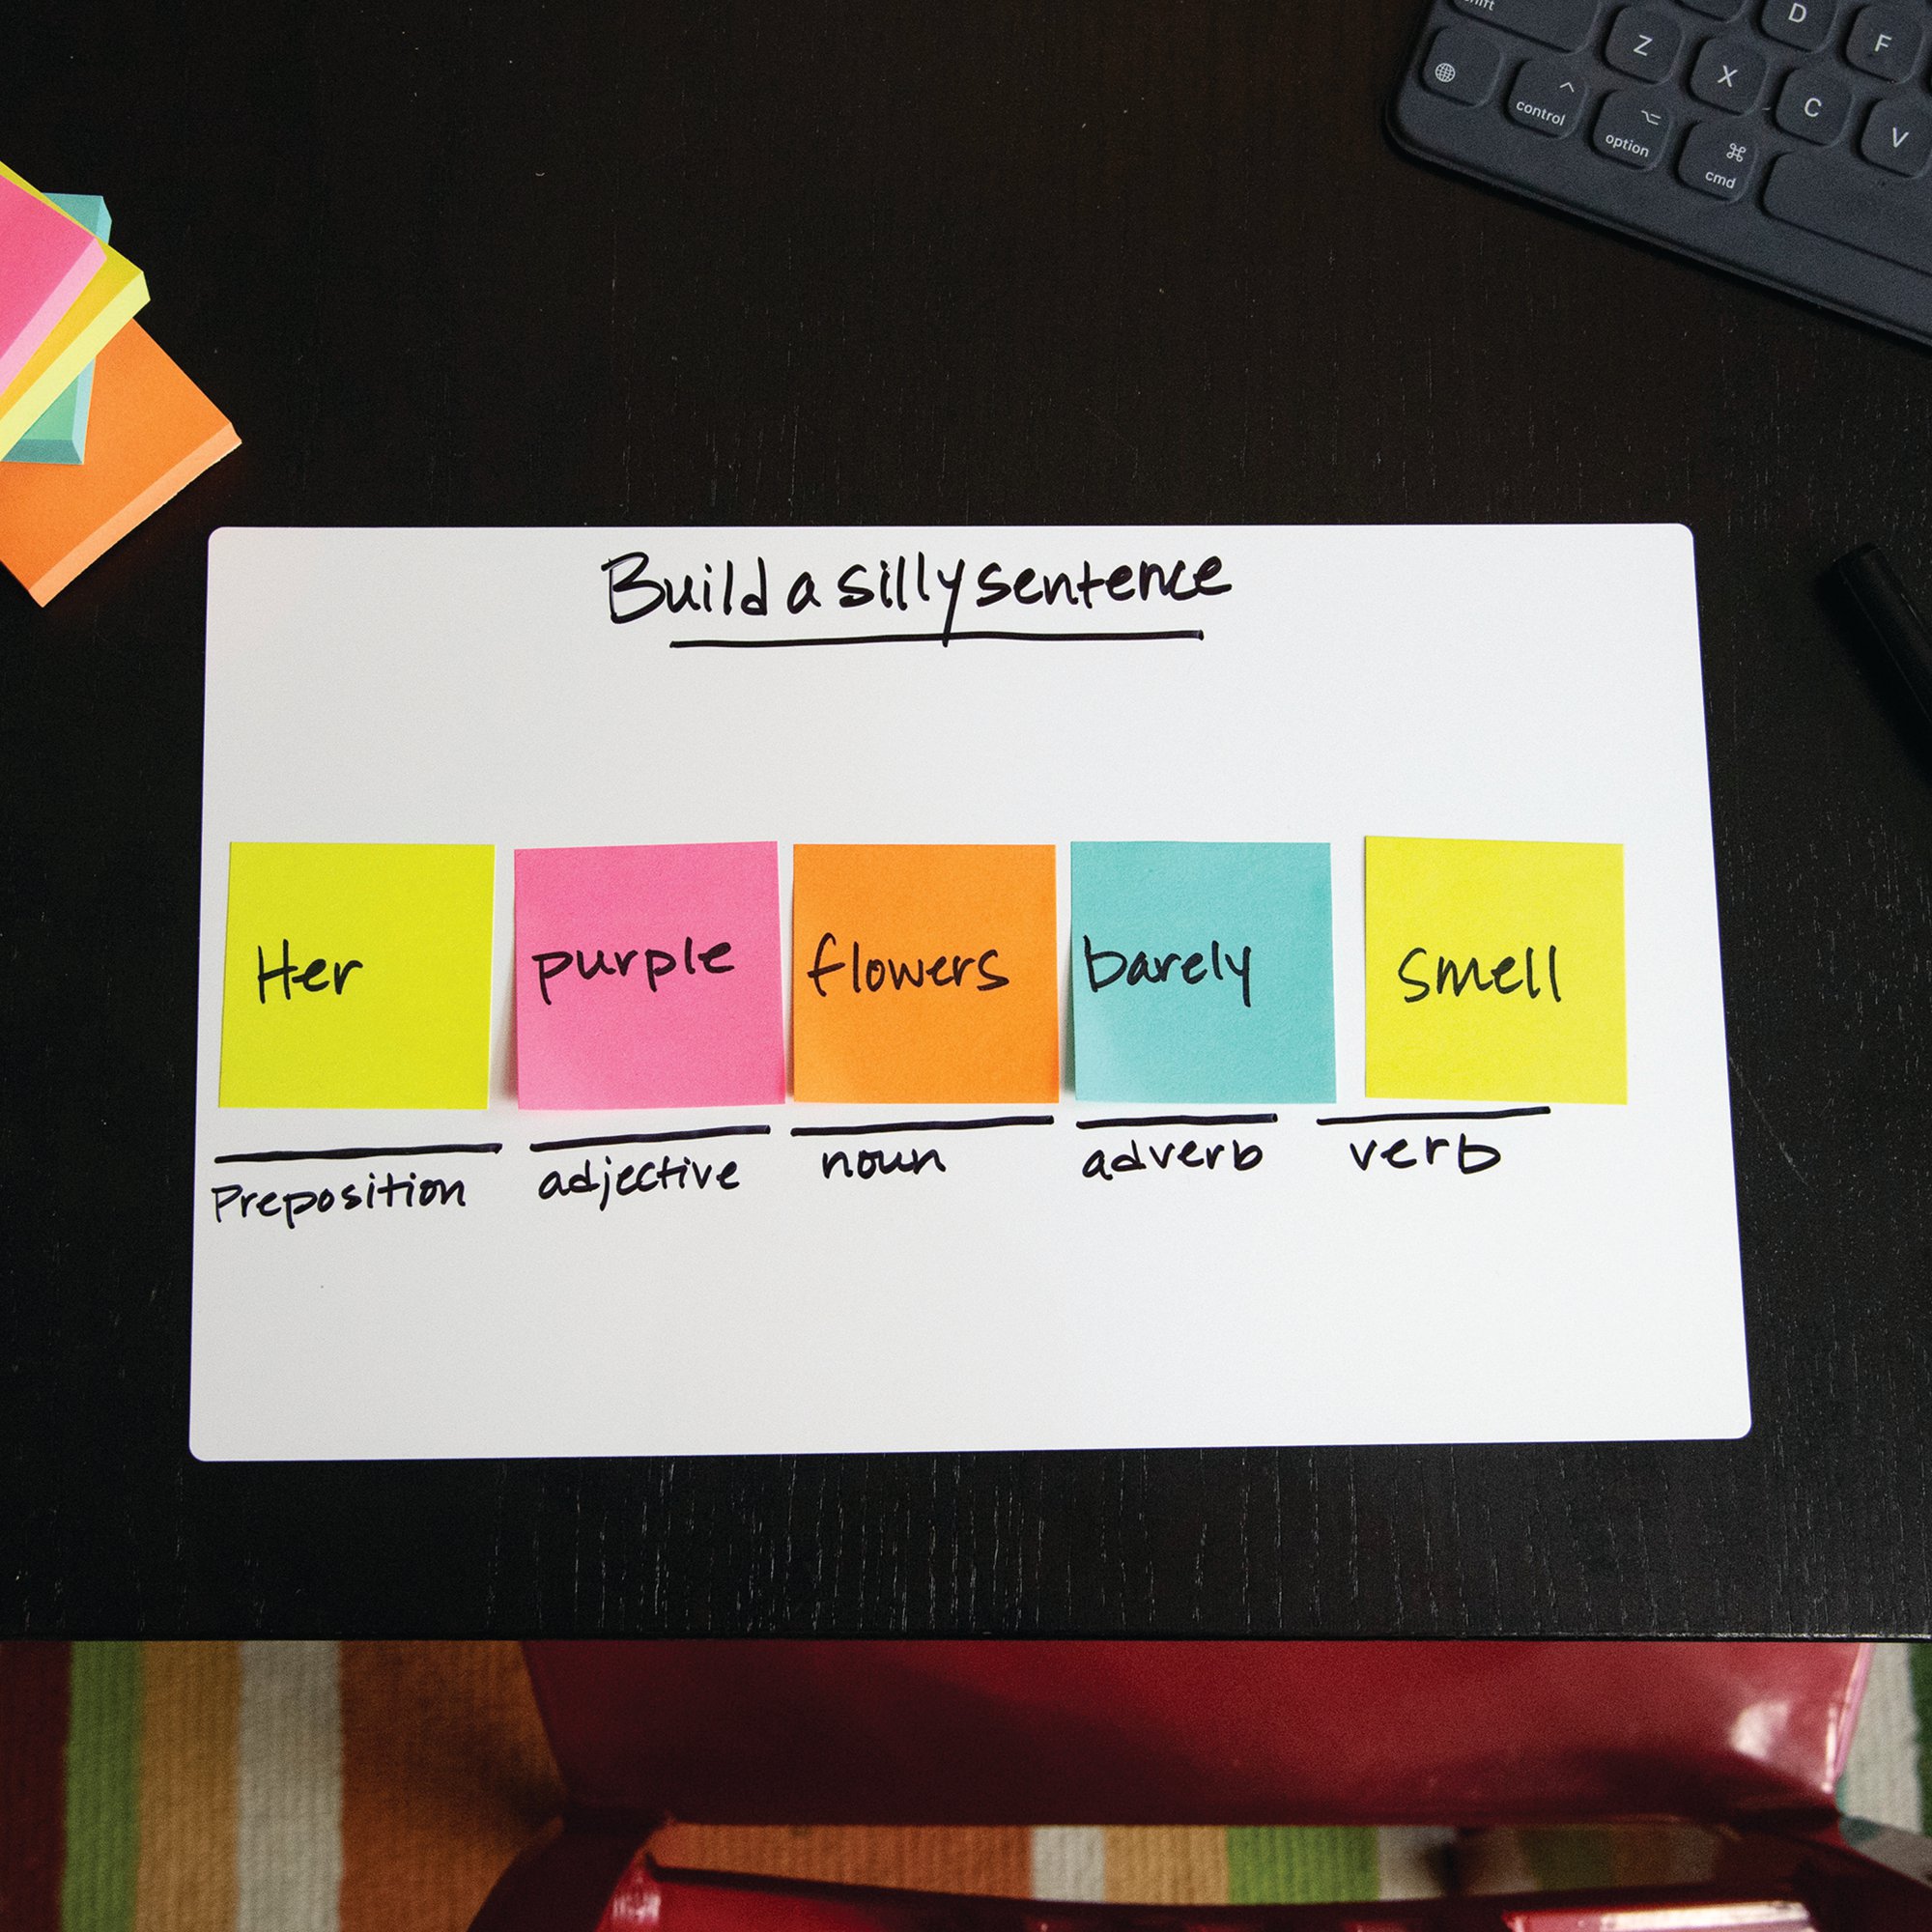 shift
D
F
Z
X
C
V
control
option
cmd
Build a silly sentence
Her purple flowers barely smell
Preposition adjective noun adverb verb